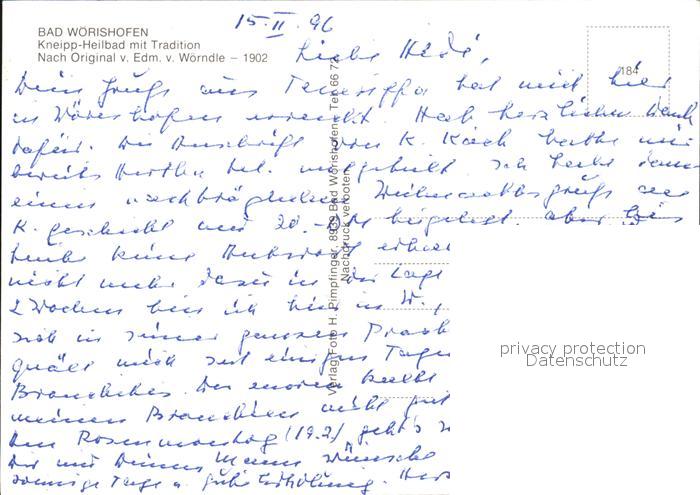 15.II.96
BAD WÖRISHOFEN
Kneipp-Heilbad mit Tradition
Nach Original v. Edm. v. Wörndle – 1902
184
Liebe Hedi,
Dein Gruß aus Teneriffa hat mich hier
in Wörishofen erreicht. Hab herzlichen Dank
dafür. Die Anschrift von K. Koch hatte mir
bereits Hertha tel. mitgeteilt. Ich habe dann
einen nachträglichen Weihnachtsgruß an
K. geschickt und 20.- DM beigelegt, aber bis
heute keine Antwort
nicht mehr dazu in der Lage
2 Wochen bin ich hier in W.,
sich in seiner ganzen Pracht
quält mich seit einigen Tagen
Bronchitis. Die enorme Kälte
meinen Bronchien nicht gut
Am Rosenmontag (19.2) geht's
Dir und Deinem Mann wünsche
sonnige Tage u. gute Erholung. Herz
Verlag Foto H. Pimpfinger, 8939 Bad Wörishofen, Tel. 66 72
Nachdruck verboten
privacy protection
Datenschutz